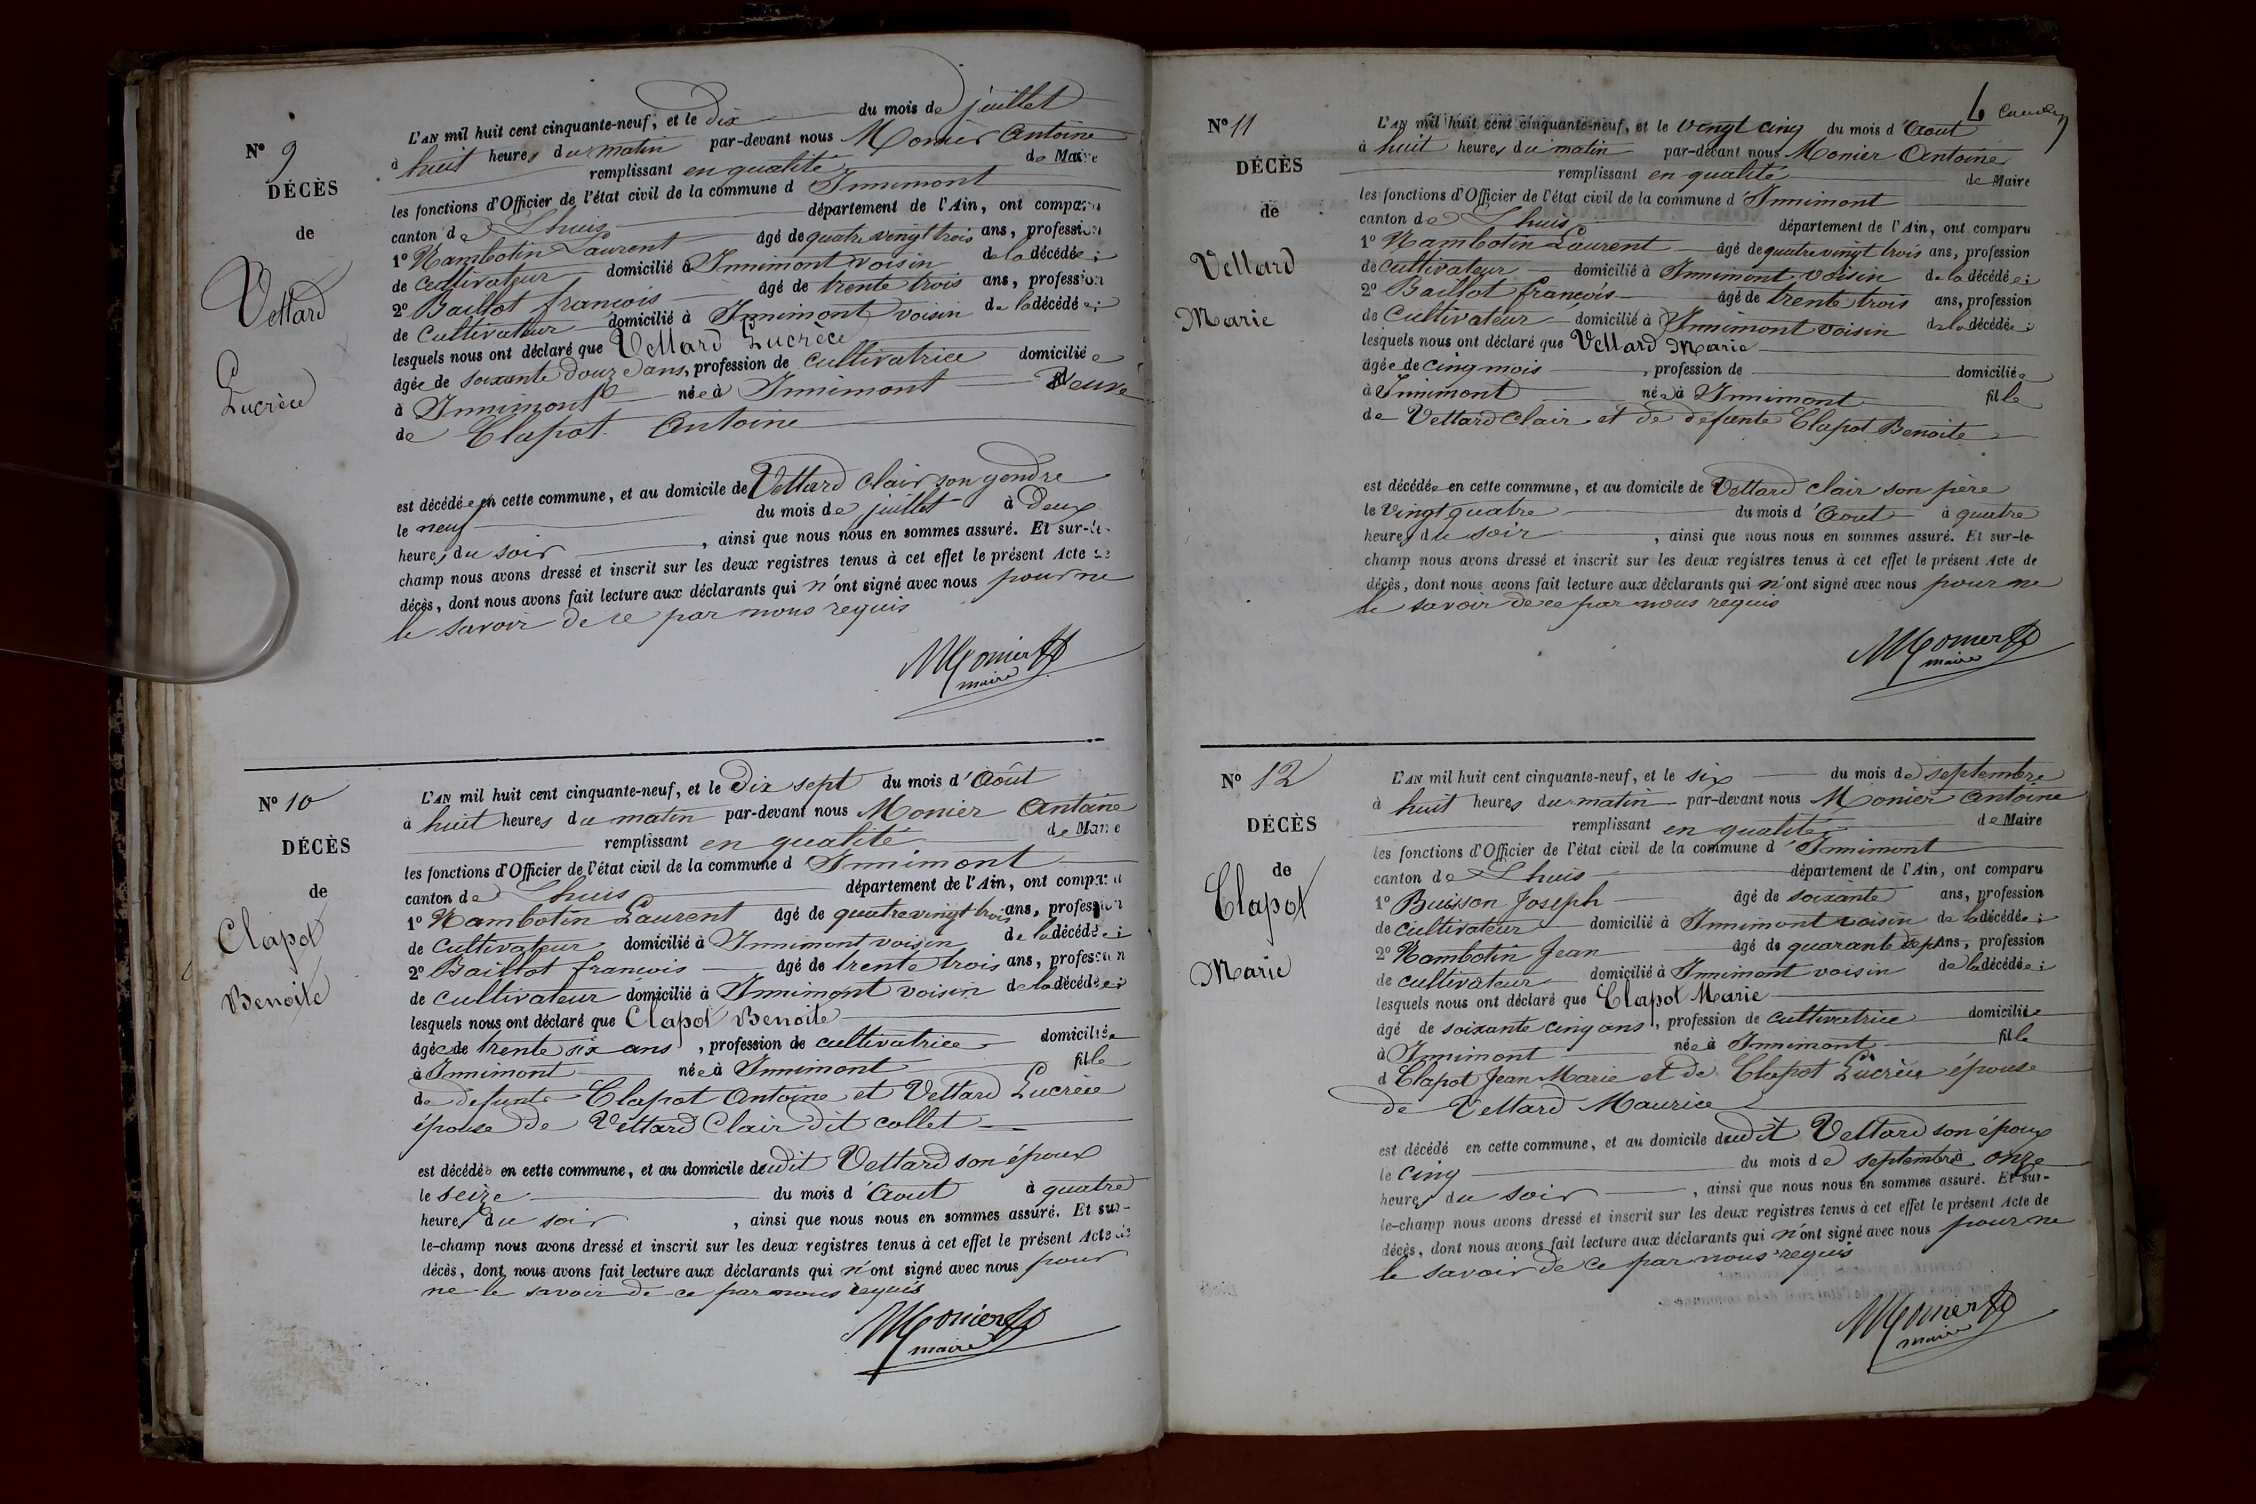 N° 9
DÉCÈS
de
Vettard
Lucrèce
L'AN mil huit cent cinquante-neuf, et le dix du mois de juillet
à huit heures du matin par-devant nous Monier Antoine
remplissant en qualité de Maire
les fonctions d'Officier de l'état civil de la commune d'Innimont
canton de Lhuis département de l'Ain, ont comparu
1° Nambotin Laurent âgé de quatre vingt trois ans, profession
de cultivateur domicilié à Innimont voisin de la décédée;
2° Baillot francois âgé de trente trois ans, profession
de cultivateur domicilié à Innimont voisin de la décédée;
lesquels nous ont déclaré que Vettard Lucrèce
âgée de soixante douze ans, profession de cultivatrice domiciliée
à Innimont née à Innimont Veuve
de Clapot Antoine
est décédée en cette commune, et au domicile de Vettard Clair son gendre
le neuf du mois de juillet à deux
heures du soir, ainsi que nous nous en sommes assuré. Et sur-le-
champ nous avons dressé et inscrit sur les deux registres tenus à cet effet le présent Acte de
décès, dont nous avons fait lecture aux déclarants qui n'ont signé avec nous pour ne
le savoir de ce par nous requis
Monier
maire
N° 10
DÉCÈS
de
Clapot
Benoite
L'AN mil huit cent cinquante-neuf, et le dix sept du mois d'Août
à huit heures du matin par-devant nous Monier Antoine
remplissant en qualité de Maire
les fonctions d'Officier de l'état civil de la commune d'Innimont
canton de Lhuis département de l'Ain, ont comparu
1° Nambotin Laurent âgé de quatre vingt trois ans, profession
de cultivateur domicilié à Innimont voisin de la décédée;
2° Baillot francois âgé de trente trois ans, profession
de cultivateur domicilié à Innimont voisin de la décédée;
lesquels nous ont déclaré que Clapot Benoite
âgée de trente six ans, profession de cultivatrice domiciliée
à Innimont née à Innimont fille
de defunte Clapot Antoine et Vettard Lucrèce
épouse de Vettard Clair dit collet
est décédée en cette commune, et au domicile dudit Vettard son époux
le seize du mois d'Aout à quatre
heures du soir, ainsi que nous nous en sommes assuré. Et sur-
le-champ nous avons dressé et inscrit sur les deux registres tenus à cet effet le présent Acte de
décès, dont nous avons fait lecture aux déclarants qui n'ont signé avec nous pour
ne le savoir de ce par nous requis
Monier
maire
6
N° 11
DÉCÈS
de
Vettard
Marie
L'AN mil huit cent cinquante-neuf, et le vingt cinq du mois d'Aout
à huit heures du matin par-devant nous Monier Antoine
remplissant en qualité de Maire
les fonctions d'Officier de l'état civil de la commune d'Innimont
canton de Lhuis département de l'Ain, ont comparu
1° Nambotin Laurent âgé de quatre vingt trois ans, profession
de cultivateur domicilié à Innimont voisin de la décédée;
2° Baillot françois âgé de trente trois ans, profession
de cultivateur domicilié à Innimont voisin de la décédée;
lesquels nous ont déclaré que Vettard Marie
âgée de cinq mois, profession de domiciliée
à Innimont née à Innimont fille
de Vettard Clair et de défunte Clapot Benoite
est décédée en cette commune, et au domicile de Vettard Clair son père
le vingt quatre du mois d'Aout à quatre
heures du soir, ainsi que nous nous en sommes assuré. Et sur-le-
champ nous avons dressé et inscrit sur les deux registres tenus à cet effet le présent Acte de
décès, dont nous avons fait lecture aux déclarants qui n'ont signé avec nous pour ne
le savoir de ce par nous requis
Monier
maire
N° 12
DÉCÈS
de
Clapot
Marie
L'AN mil huit cent cinquante-neuf, et le six du mois de septembre
à huit heures du matin par-devant nous Monier Antoine
remplissant en qualité de Maire
les fonctions d'Officier de l'état civil de la commune d'Innimont
canton de Lhuis département de l'Ain, ont comparu
1° Buisson Joseph âgé de soixante ans, profession
de cultivateur domicilié à Innimont voisin de la décédée;
2° Nambotin Jean âgé de quarante sept ans, profession
de cultivateur domicilié à Innimont voisin de la décédée;
lesquels nous ont déclaré que Clapot Marie
âgé de soixante cinq ans, profession de cultivatrice domiciliée
à Innimont née à Innimont fille
d Clapot Jean Marie et de Clapot Lucrèce épouse
de Vettard Maurice
est décédé en cette commune, et au domicile dudit Vettard son époux
le cinq du mois de septembre à onze
heures du soir, ainsi que nous nous en sommes assuré. Et sur-
le-champ nous avons dressé et inscrit sur les deux registres tenus à cet effet le présent Acte de
décès, dont nous avons fait lecture aux déclarants qui n'ont signé avec nous pour ne
le savoir de ce par nous requis
Monier
maire